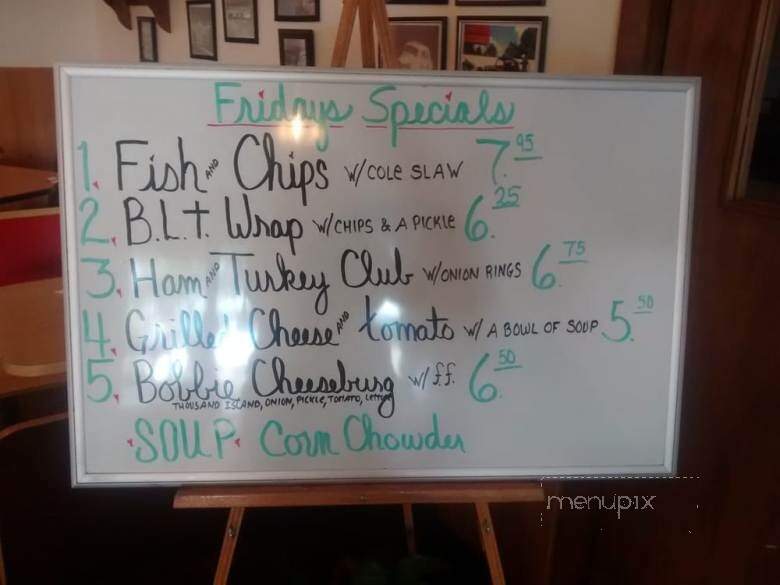 Fridays Specials
1. Fish AND Chips W/COLE SLAW 7.95
2. B.L.T. Wrap W/CHIPS & A PICKLE 6.25
3. Ham AND Turkey Club W/ONION RINGS 6.75
4. Grilled Cheese AND tomato W/ A BOWL OF SOUP 5.50
5. Bobbie Cheeseburg W/ f.f. 6.50
THOUSAND ISLAND, ONION, PICKLE, TOMATO, LETTUCE
SOUP Corn Chowder
menupix